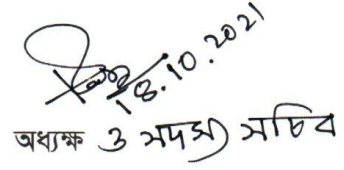 18.10.2021
অধ্যক্ষ ও সদস্য সচিব